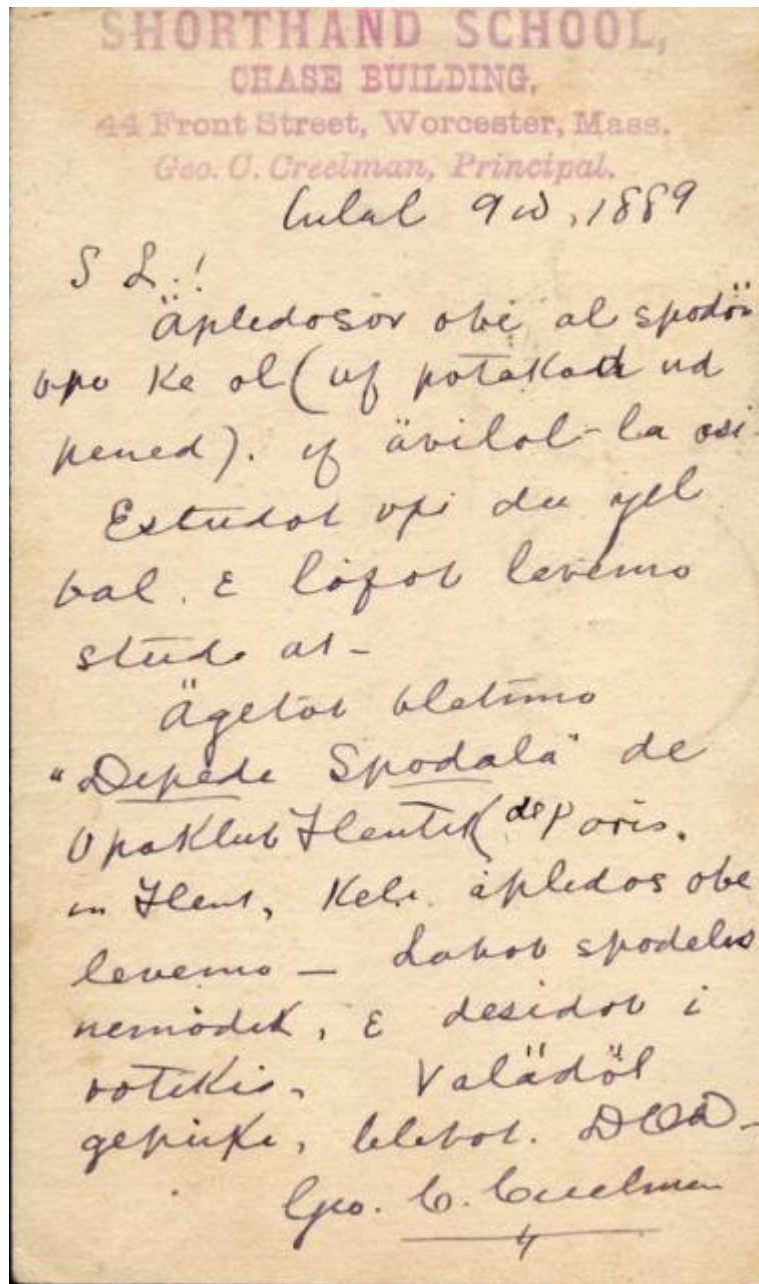 SHORTHAND SCHOOL,
CHASE BUILDING,
44 Front Street, Worcester, Mass.
Geo. C. Creelman, Principal.
lulal 9id, 1889
S L.!
Äpledosöv obe al spodön
vpo ke ol (uf potakad ud
pened). if ävilol-la osi.
Estudob vpi du yel
bal. E löfob levemo
studi at-
Ägetob bletimo
"Depedi Spodala" de
Vpaklub Flentik de Paris.
in Flent, Keli äpledos obe
levemo — Labob spodelis
nemödik, E desidob i
votikis. Valädöl
gepüki, blebob.
Geo. C. Creelman